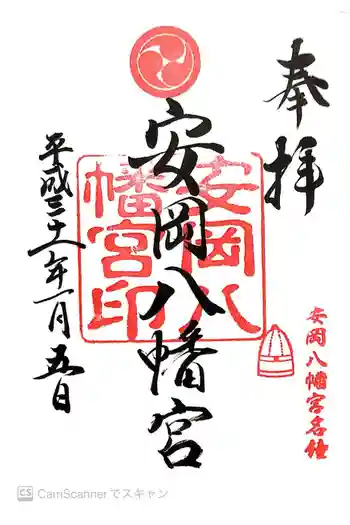 奉拝
安岡八幡宮
安岡八
幡宮印
平成三十一年一月五日
安岡八幡宮名社
CS CamScanner でスキャン